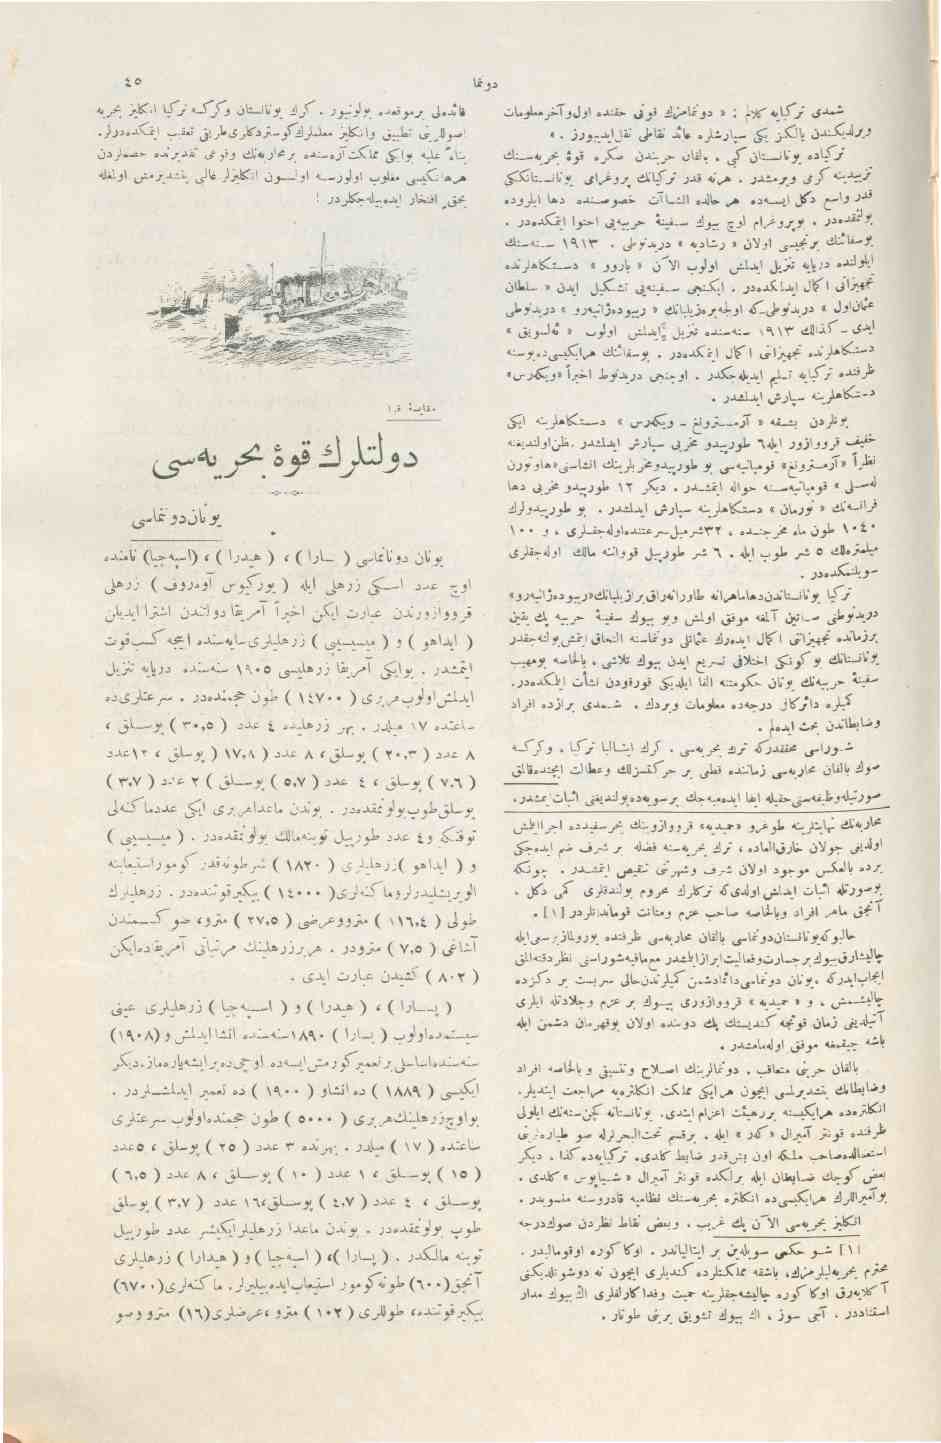 دوننما
٤٥
شمدی تركیایه كلام : « دوننمامزك قوتی حقنده اول و آخر معلومات
ویرلدیكندن یالكز یكی سپارشلره عائد نقاطی نقل ایدییورز . »
تركیاده یونانستان كبی . بالقان حربندن صكره قوهٔ بحریه‌سنك
تزییدینه كرمی ویرمشدر . هرنه قدر تركیانك پروغرامی یونانستانككی
قدر واسع دكل ایسه‌ده هر حالده انشاآت خصوصنده دها ایلروده
بولنمقده‌در . بوپروغرام اوچ بیوك سفینهٔ حربیه‌یی احتوا ایتمكده‌در .
بوسفائنك برنجیسی اولان « رشادیه » دریدنوطی . ١٩١٣ سنه‌سنك
ایلولنده دریایه تنزیل ایدلمش اولوب الآن « بارور » دستكاهلرنده
تجهیزاتی اكمال ایدلمكده‌در . ایكنجی سفینه‌یی تشكیل ایدن « سلطان
عثمان اول » دریدنوطی‌ـ كه اولجه برەزیلیانك « رییوده‌ژانیه‌رو » دریدنوطی
ایدی ـ كذالك ١٩١٣ سنه‌سنده تنزیل ایدلمش اولوب « ئه‌لسویق »
دستكاهلرنده تجهیزاتی اكمال ایتمكده‌در . بوسفائنك هر ایكیسی‌ده بوسنه
ظرفنده تركیایه تسلیم ایدیله‌جكدر . اوچنجی دریدنوط اخیراً « ویكه‌رس »
دستكاهلرینه سپارش ایدلمشدر .
بونلردن بشقه « آرمسترونغ ـ ویكه‌رس » دستكاهلرینه ایكی
خفیف قرووازور ایله ٦ طورپیدو مخربی سپارش ایدلمشدر . ظن اولندیغنه
نظراً « آرمسترونغ » قومپانیه‌سی بو طورپیدومخربلرینك انشاسنی « هاوتورن
له‌سلی » قومپانیه‌سنه حواله ایتمشدر . دیكر ١٢ طورپیدو مخربی دها
فرانسه‌نك « نورمان » دستكاهلرینه سپارش ایدلمشدر . بو طورپیدولرك
١٠٤٠ طون ماء مخرجنده ، ٣٢شر میل سرعتنده اوله‌جقلری ، و ١٠٠
میلمتره‌لك ٥ شر طوب ایله . ٦ شر طورپیل قووانه مالك اوله‌جقلری
سویلنمكده‌در .
تركیا یوناستاندن دها ماهرانه طاورانه‌رق برازیلیانك « رییوده‌ژانیه‌رو »
دریدنوطی ساتین آلمغه موفق اولمش وبو بیوك سفینهٔ حربیه پك یقین
برزمانده تجهیزاتی اكمال ایده‌رك عثمانلی دوننماسنه التحاق ایتمش بولنه‌جقدر
یونانستانك بو كونكی اختلافی تسریع ایدن بیوك تلاشی . بالخاصه بومهیب
سفینهٔ حربیه‌نك یونان حكومتنه القا ایلدیكی قورقودن نشأت ایتمكده‌در .
كمیلره دائر كافی درجه‌ده معلومات ویردك . شمدی برازده افراد
وضابطاندن بحث ایده‌لم .
شوراسی محققدركه ترك بحریه‌سی . كرك ایتالیا تركیا ، وكركسه
صوك بالقان محاربه‌سی زماننده قطعی بر حركتسزلك وعطالت ایچنده قالمق
صورتیله وظیفه‌سنی حقیله ایفا ایده‌میه‌جك برسویه‌ده بولندیغنی اثبات ایتمشدر .
محاربه‌نك نهایتلرینه طوغرو « حمیدیه » قرووازورینك بحر سفیدده اجرا ایتمش
اولدیغی جولان خارق‌العاده ، ترك بحریه‌سنه فضله بر شرف ضم ایده‌جكی
یرده بالعكس موجود اولان شرف وشهرتنی تنقیص ایتمشدر . چونكه
بوصورتله اثبات ایدلمش اولدی‌كه تركلرك محروم بولندقلری كمی دكل .
آنجق ماهر افراد وبالخاصه صاحب عزم ومتانت قوماندانلردر [١] .
حالبوكه یونانستان دوننماسی بالقان محاربه‌سی ظرفنده یورولماز برسعی ایله
چالیشارق بیوك بر جسارت وفعالیت ابراز ایلمشدر مع‌مافیه شوراسنی نظر دقته آلمق
ایجاب ایدركه . یونان دوننماسی دائما دشمن كمیلرندن خالی سربست بر دكزده
چالیشمش . و « حمیدیه » قرووازوری بیوك بر عزم وجلادتله ایلری
آتیلدیغی زمان قوجه كندیسنك پك دوننده اولان بوقهرمان دشمن ایله
باشه چیقمغه موفق اوله‌مامشدر .
بالقان حربنی متعاقب . دوننمالرینك اصلاح وتنسیقی وبالخاصه افراد
وضابطانك یتشدیرلمسی ایچون هر ایكی مملكت انكلتره‌یه مراجعت ایتدیلر .
انكلتره‌ده هر ایكیسنه برهیئت اعزام ایتدی . یونانستانه كچن سنه‌نك ایلولی
ظرفنده قونتر آمیرال « كه‌ر » ایله . برقسم تحت‌البحرلرله صو طیاره‌لرینی
استعمالده صاحب ملكه اون بش قدر ضابط كلدی . تركیایه‌ده كذا . دیكر
بعض كوچك ضابطان ایله برلكده قونتر آمیرال « شیاپوس » كلدی .
بوآمیراللرك هر ایكیسی‌ده انكلتره بحریه‌سنك نظامیه قادروسنه منسوبدر .
انكلیز بحریه‌سی الآن پك غریب . وبعض نقاط نظردن صوك درجه
[١] شو حكمی سویله‌ین بر ایتالیاندر . اوكا كوره اوقومالیدر .
محترم بحریه‌لیلرمزك ، باشقه مملكتلرده كندیلری ایچون نه دوشونلدیكنی
آكلایه‌رق اوكا كوره چالیشه‌جقلرینه حمیت وفداكارلقلری الك بیوك مدار
استناددر . آجی سوز ، الك بیوك تشویق یرینی طوتار .
فائده‌لی برموقعده بولونیور . كرك یونانستان وكركسه تركیا انكلیز بحریه
اصوللرینی تطبیق وانكلیز معلملرك كوستردكلری طریقی تعقیب ایتمكده‌درلر .
بناءً علیه بو ایكی مملكت آره‌سنده بر محاربه‌نك وقوعی تقدیرنده خصملردن
هر هانكیسی مغلوب اولورسه اولسون انكلیزلر غالبی یتشدیرمش اولمغله
بحق افتخار ایده‌بیله‌جكلردر !
مقایسهٔ قوا
دولتلرك قوهٔ بحریه‌سی
یونان دوننماسی
یونان دوناننماسی ( پسارا ) ، ( هیدرا ) ، ( اسپه‌چیا ) نامنده
اوچ عدد اسكی زرهلی ایله ( یورگیوس آوەروف ) زرهلی
قرووازوردن عبارت ایكن اخیراً آمریقا دولتندن اشترا ایدیلن
( ایداهو ) و ( میسیسیپی ) زرهلیلری سایه‌سنده ایجه كسب قوت
ایتمشدر . بوایكی آمریقا زرهلیسی ١٩٠٥ سنه‌سنده دریایه تنزیل
ایدلمش اولوب هر بری ( ١٤٧٠٠ ) طون حجمنده‌در . سرعتلری‌ده
ساعتده ١٧ میلدر . بهر زرهلیده ٤ عدد ( ٣٠,٥ ) یوسلق ،
٨ عدد ( ٢٠,٣ ) یوسلق ، ٨ عدد ( ١٧,٨ ) یوسلق ، ١٢ عدد
( ٧,٦ ) یوسلق ، ٤ عدد ( ٥,٧ ) یوسلق ، ٢ عدد ( ٣,٧ )
یوسلق طوب بولونمقده‌در . بوندن ماعدا هر بری ایكی عدد ماكنه‌لی
توفنكه و ٤ عدد طورپیل توبنه مالك بولونمقده‌در . ( میسیسیپی )
و ( ایداهو ) زرهلیلری ( ١٨٢٠ ) شر طونه قدر كومور استیعابنه
الویریشلیدرلر وماكنه‌لری ( ١٤٠٠٠ ) بیكیر قوتنده‌در . زرهلیلرك
طولی ( ١١٦,٤ ) مترو وعرضی ( ٢٧,٥ ) مترو ، صو كسمندن
آشاغی ( ٧,٥ ) مترودر . هربر زرهلینك مرتباتی آمریقاده ایكن
( ٨٠٢ ) كشیدن عبارت ایدی .
( پسارا ) ، ( هیدرا ) و ( اسپه‌چیا ) زرهلیلری عینی
سیستمده اولوب ( پسارا ) ١٨٩٠ سنه‌سنده انشا ایدلمش و ( ١٩٠٨ )
سنه‌سنده اساسلی بر تعمیر كورمش ایسه‌ده اوجی‌ده بر ایشه یاره‌ماز . دیكر
ایكیسی ( ١٨٨٩ ) ده انشا و ( ١٩٠٠ ) ده تعمیر ایدلمشلردر .
بواوچ زرهلینك هر بری ( ٥٠٠٠ ) طون حجمنده اولوب سرعتلری
ساعتده ( ١٧ ) میلدر . بهرنده ٣ عدد ( ٢٥ ) یوسلق ، ٥ عدد
( ١٥ ) یوسلق ، ١ عدد ( ١٠ ) یوسلق ، ٨ عدد ( ٦,٥ )
یوسلق ، ٤ عدد ( ٤,٧ ) یوسلق ، ١٦ عدد ( ٣,٧ ) یوسلق
طوب بولونمقده‌در . بوندن ماعدا زرهلیلر ایكیشر عدد طورپیل
توبنه مالكدر . ( پسارا ) ، ( اسپه‌چیا ) و ( هیدارا ) زرهلیلری
آنجق ( ٦٠٠ ) طونه كومور استیعاب ایده‌بیلیرلر . ماكنه‌لری ( ٦٧٠٠ )
بیكیر قوتنده ، طوللری ( ١٠٢ ) مترو ، عرضلری ( ١٦ ) مترو وصو